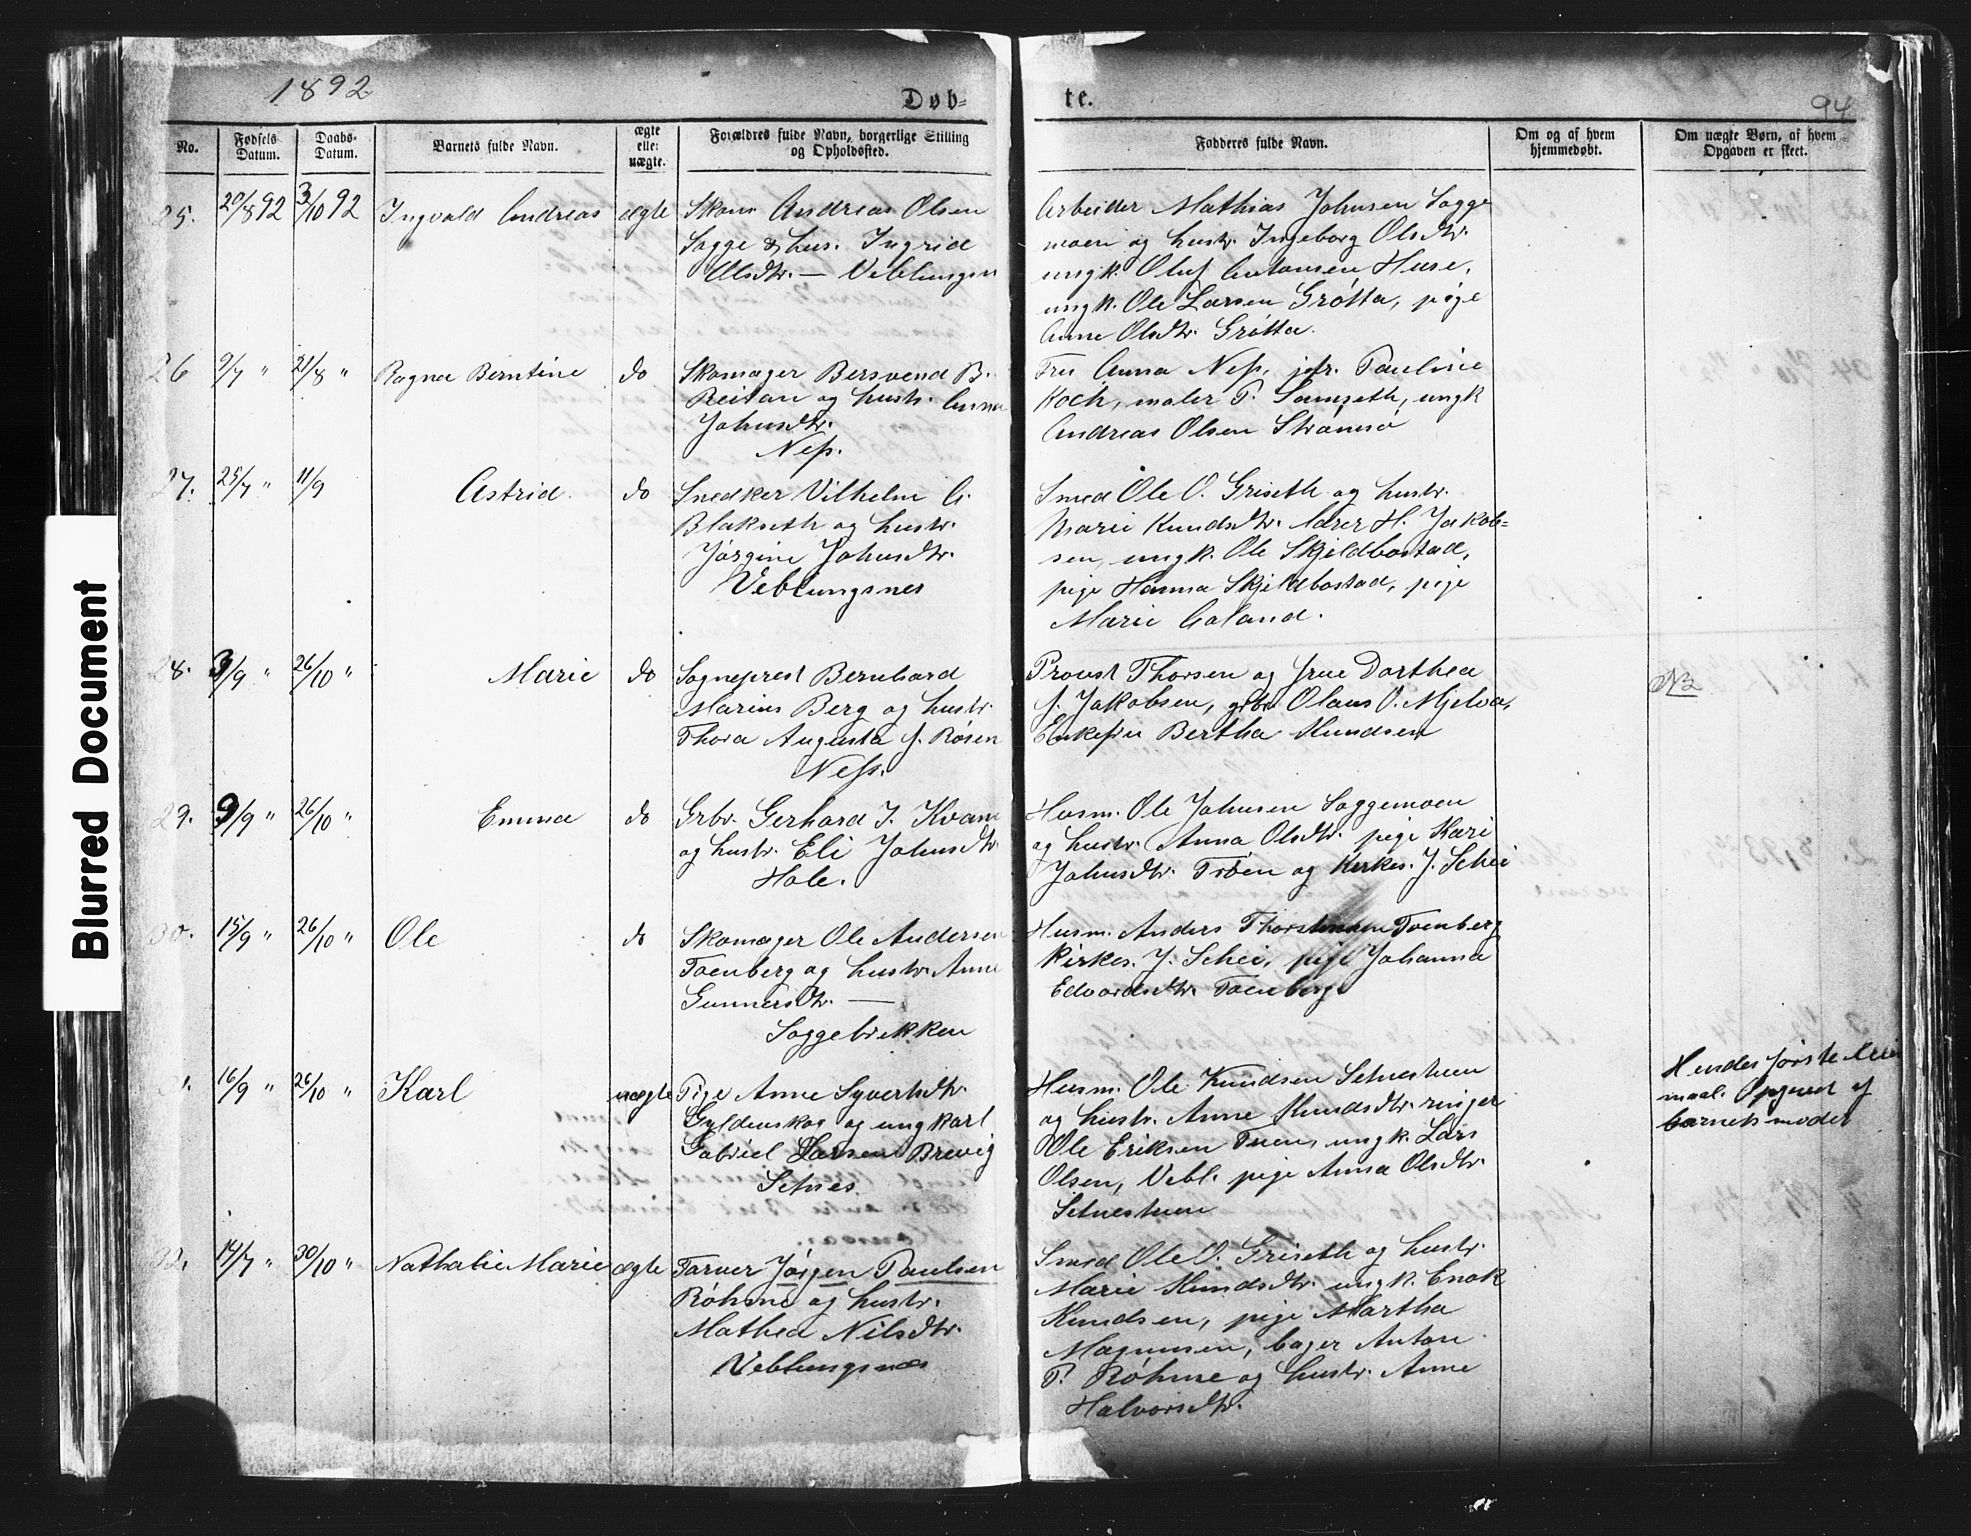 1892
Døb=
te.
94
No.
Fødsels Datum.
Daabs-Datum.
Barnets fulde Navn.
ægte elle: uægte.
Forældres fulde Navn, borgerlige Stilling og Opholdssted.
Fadderes fulde Navn.
Om og af hvem hjemmedøbt.
Om uægte Børn, af hvem Opgaven er skeet.
25. 20/8 92 3/10 92 Ingvald Andreas ægte
Skom. Andreas Olsen
Sogge & hus. Ingrid
Olsdtr. — Veblungsn
Arbeider Mathias Johnsen Sogge
moen og hustr. Ingeborg Olsdtr.
ungk. Oluf Antonsen Huse,
ungk. Ole Larsen Grøtta, pige
Anne Olsdtr. Grøtta.
26 9/7 " 21/8 " Ragna Berntine do
Skomager Bersvend B.
Reitan og hustr. Anna
Johnsdtr.
Ness.
Fru Anna Ness, jfr. Pauline
Koch, maler P. Samseth, ungk
Andreas Olsen Strømsø
27. 25/7 " 11/9 Astrid. do
Snedker Vilhelm A.
Blakseth og hustr.
Jørgine Johnsdtr.
Veblungsnes
Smed Ole O. Griseth og hustr.
Marie Knudsdtr. lærer H. Jakob=
sen, ungk. Ole Skjeldbostad,
pige Hanna Skjeldbostad, pige
Marie Aaland.
28. 3/9 " 26/10 " Marie do
Sogneprest Bernhard
Marius Berg og hustr.
Thora Augusta f. Rosen
Ness.
Provst Thorsen og frue Dorthea
f. Jakobsen, grbr. Olaus O. Mjelva,
Enkefru Bertha Knudsen
NB
29. 9/9 " 26/10 " Emma do
Grbr. Gerhard J. Kvam
og hustr. Eli Johnsdtr.
Hole.
Husm. Ole Johnsen Soggemoen
og hustr. Anna Olsdtr. pige Kari
Johnsdtr. Trøen og Kirkes. J. Schei
30. 15/9 " 26/10 " Ole do
Skomager Ole Andersen
Toenberg og hustr. Anne
Gunnersdtr. —
Soggebrekken
Husm. Anders Thorstensen Toenberg
Kirkes. J. Schei, pige Johanna
Edvardsdtr. Toenberg
16/9 " 26/10 " Karl uægte
Pige Anne Syvertsdtr.
Gyldenskog og ungkarl
Gabriel Larsen Brevig
Setnes
Husm. Ole Knudsen Setnestuen
og hustr. Anne Knudsdtr. ringer
Ole Eriksen Tuen, ungk. Lars
Olsen, Vebl. pige Anna Olsdtr.
Setnestuen
Hendes første leier
maal. Opgivet af
barnets moder
32. 14/7 " 30/10 " Nathalie Marie ægte
Farver Jørgen Paulsen
Røhme og hustr.
Mathea Nilsdtr.
Veblungsnæs
Smed Ole O. Griseth og hustr.
Marie Knudsdtr. ungk. Enok
Knudsen, pige Martha
Magnussen, bager Anton
P. Røhme og hustr. Anne
Halvorsdtr.
Blurred Document